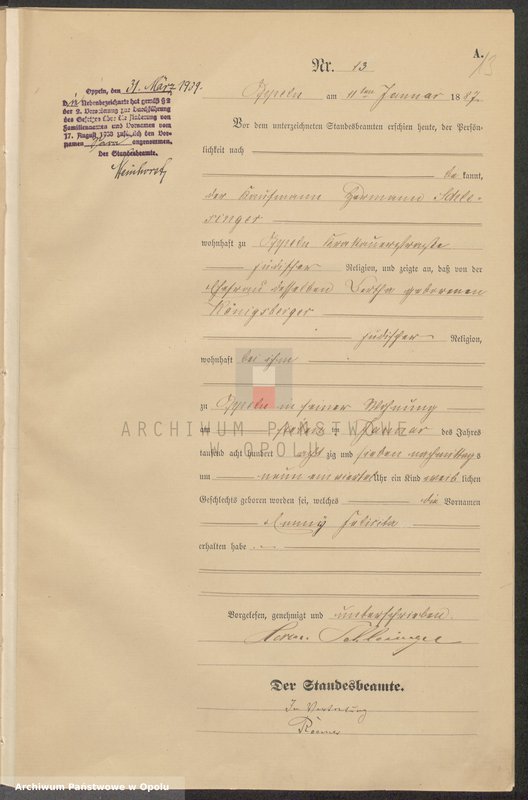 A.
13
Nr. 13
Oppeln, den 31. März 1939.
Nebenbezeichnete hat gemäß § 2
der 2. Verordnung zur Durchführung
des Gesetzes über die Änderung von
Familiennamen und Vornamen vom
17. August 1938 zusätzlich den Vor-
namen Sara angenommen.
Der Standesbeamte.
Oppeln am 11ten Januar 1887.
Vor dem unterzeichneten Standesbeamten erschien heute, der Persön-
lichkeit nach
bekannt,
der Kaufmann Hermann Schle-
singer
wohnhaft zu Oppeln Krakauerstraße
jüdischer Religion, und zeigte an, daß von der
Ehefrau desselben Bertha geborenen
Königsberger
jüdischer Religion,
wohnhaft bei ihm
zu Oppeln in seiner Wohnung
am sieben ten Januar des Jahres
tausend acht hundert achtzig und sieben nachmittags
um neun einviertel Uhr ein Kind weiblichen
Geschlechts geboren worden sei, welches die Vornamen
Felicita
erhalten habe
Vorgelesen, genehmigt und unterschrieben.
Herm. Schlesinger
Der Standesbeamte.
In Vertretung
ARCHIWUM PAŃSTWOWE
W OPOLU
Archiwum Państwowe w Opolu